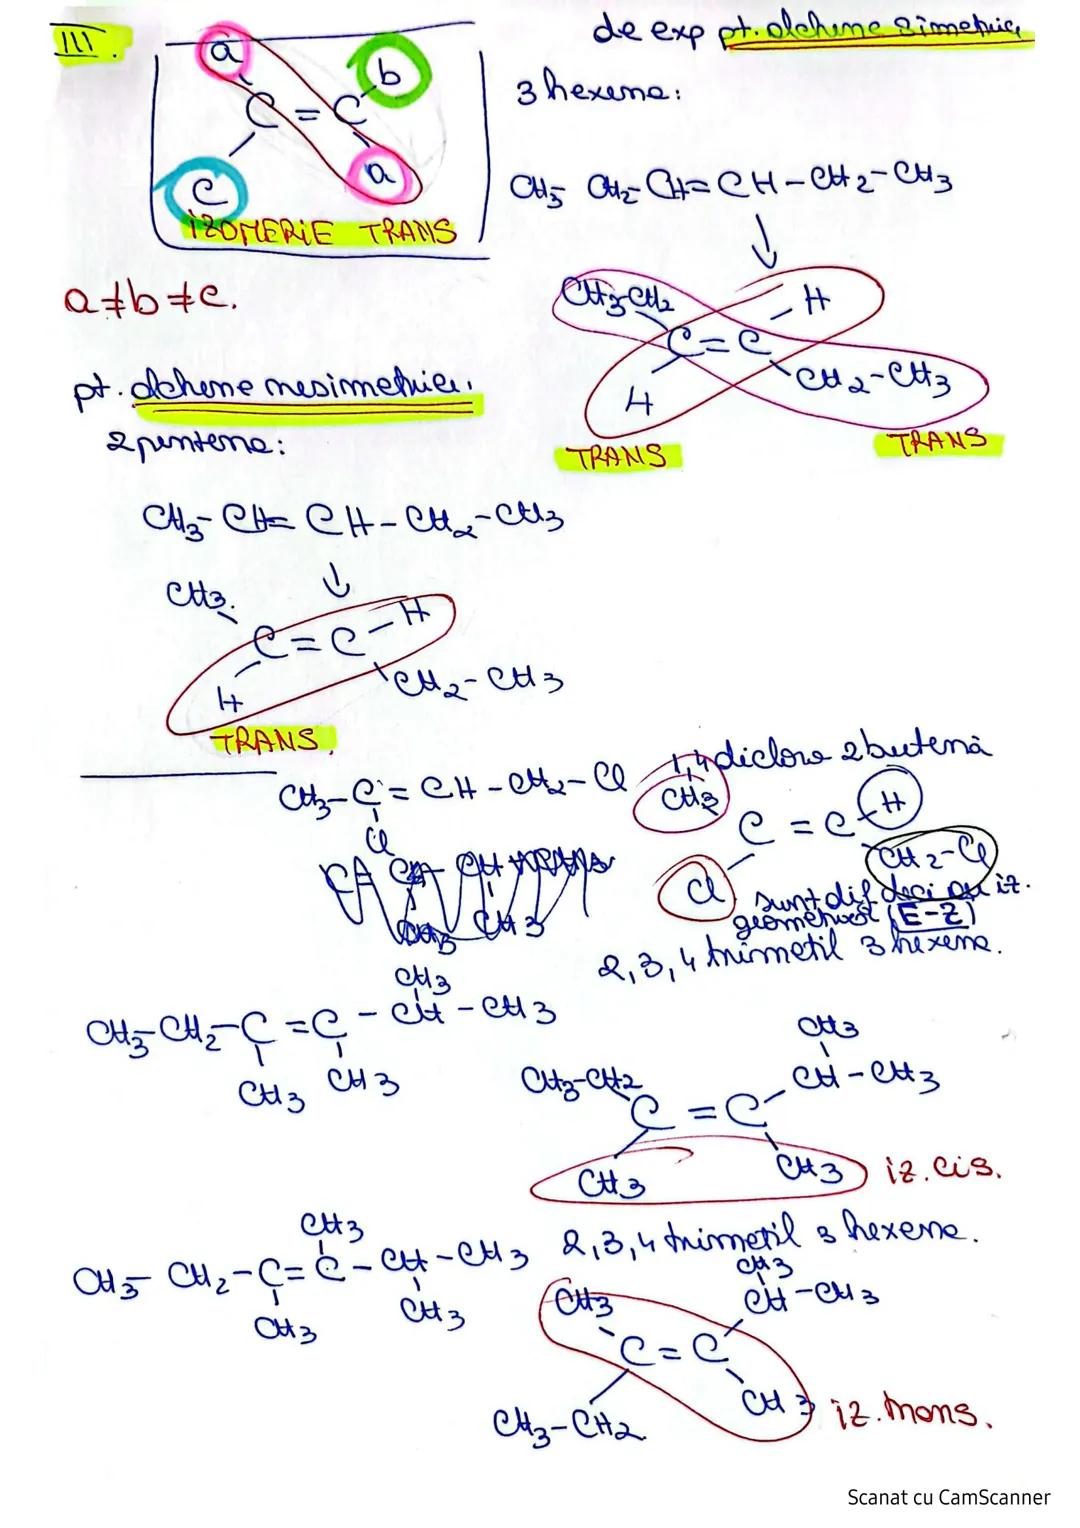 III.
a
b
C = C
c
a
IZOMERIE TRANS
a≠b≠c.
de exp pt. alchene simetrice
3 hexena:
CH3 CH2-CH=CH-CH2-CH3
↓
CH3-CH2
H
C=C
H
CH2-CH3
TRANS
TRANS
pt. alchene nesimetrice.
2 pentena:
CH3-CH=CH-CH2-CH3
↓
CH3
H
C=C
H
CH2-CH3
TRANS.
CH3-C=CH-CH2-Cl
Cl
1,4 dicloro 2 butenă
CH3
H
C=C
Cl
CH2-Cl
sunt dif deci au iz.
geometrică (E-Z)
2,3,4 trimetil 3 hexena.
CH3
CH3-CH2-C=C-CH-CH3
CH3 CH3
CH3
CH3-CH2
CH-CH3
C=C
CH3
CH3
iz. cis.
CH3
CH3-CH2-C=C-CH-CH3
CH3
CH3
2,3,4 trimetil 3 hexena.
CH3
CH3
CH-CH3
C=C
CH3-CH2
CH3
iz. trans.
Scanat cu CamScanner